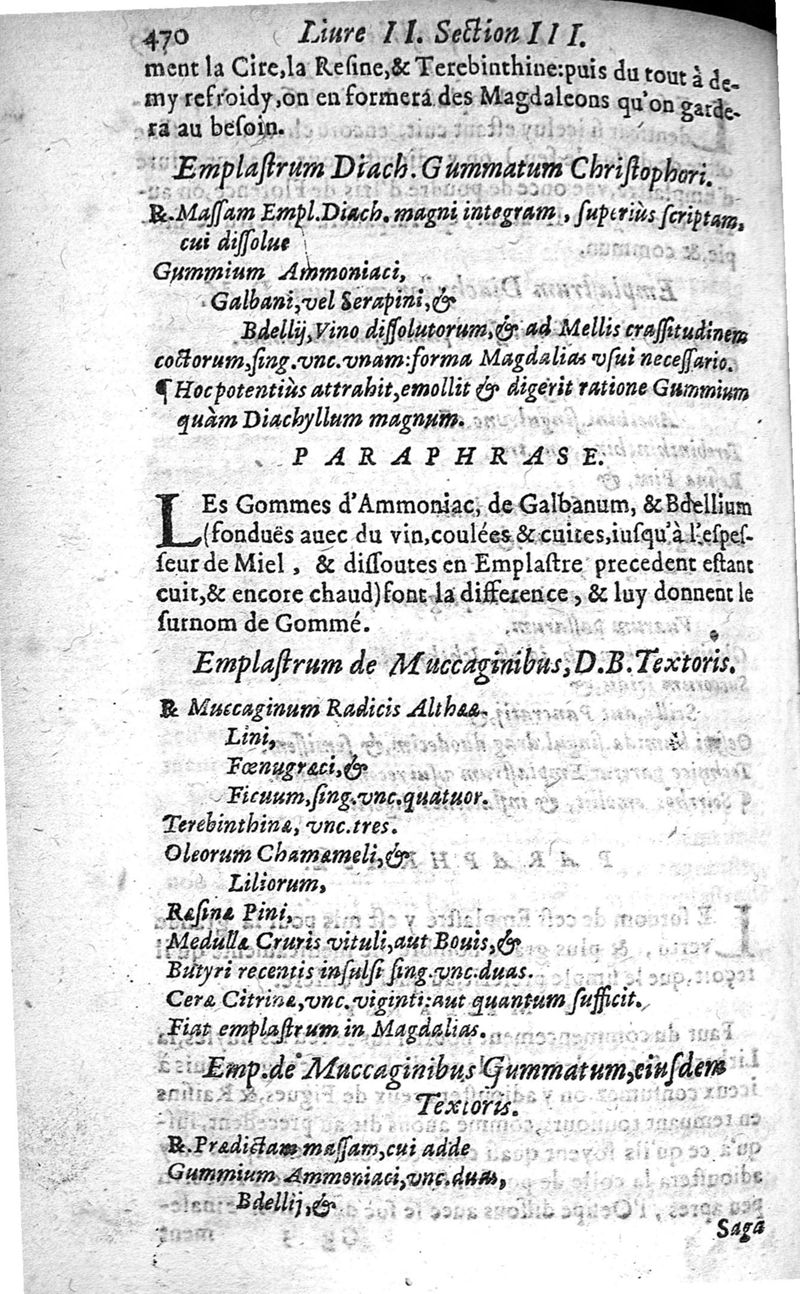 470 Liure II. Section III.
ment la Cire,la Resine,& Terebinthine:puis du tout à de-
my refroidy,on en formera des Magdaleons qu'on garde-
ra au besoin.
Emplastrum Diach. Gummatum Christophori.
℞.Massam Empl.Diach. magni integram, superiùs scriptam,
cui dissolue
Gummium Ammoniaci,
Galbani,vel Serapini,&
Bdellij,Vino dissolutorum,& ad Mellis crassitudinem
coctorum,sing.vnc.vnam:forma Magdalias vsui necessario.
¶ Hoc potentiùs attrahit,emollit & digerit ratione Gummium
quàm Diachyllum magnum.
PARAPHRASE.
LEs Gommes d'Ammoniac, de Galbanum, & Bdellium
(fonduës auec du vin,coulées & cuites,iusqu'à l'espes-
seur de Miel, & dissoutes en Emplastre precedent estant
cuit,& encore chaud)font la difference, & luy donnent le
surnom de Gommé.
Emplastrum de Muccaginibus, D.B.Textoris.
℞ Muccaginum Radicis Althææ.
Lini,
Fœnugræci,&
Ficuum,sing.vnc.quatuor.
Terebinthinæ, vnc.tres.
Oleorum Chamæmeli,&
Liliorum,
Ræsinæ Pini,
Medullæ Cruris vituli,aut Bouis,&
Butyri recentis insulsi sing.vnc.duas.
Ceræ Citrinæ,vnc.viginti:aut quantum sufficit.
Fiat emplastrum in Magdalias.
Emp.de Muccaginibus Gummatum,eiusdem
Textoris.
℞.Prædictam massam,cui adde
Gummium Ammoniaci,vnc.duas,
Bdellij,&
Saga